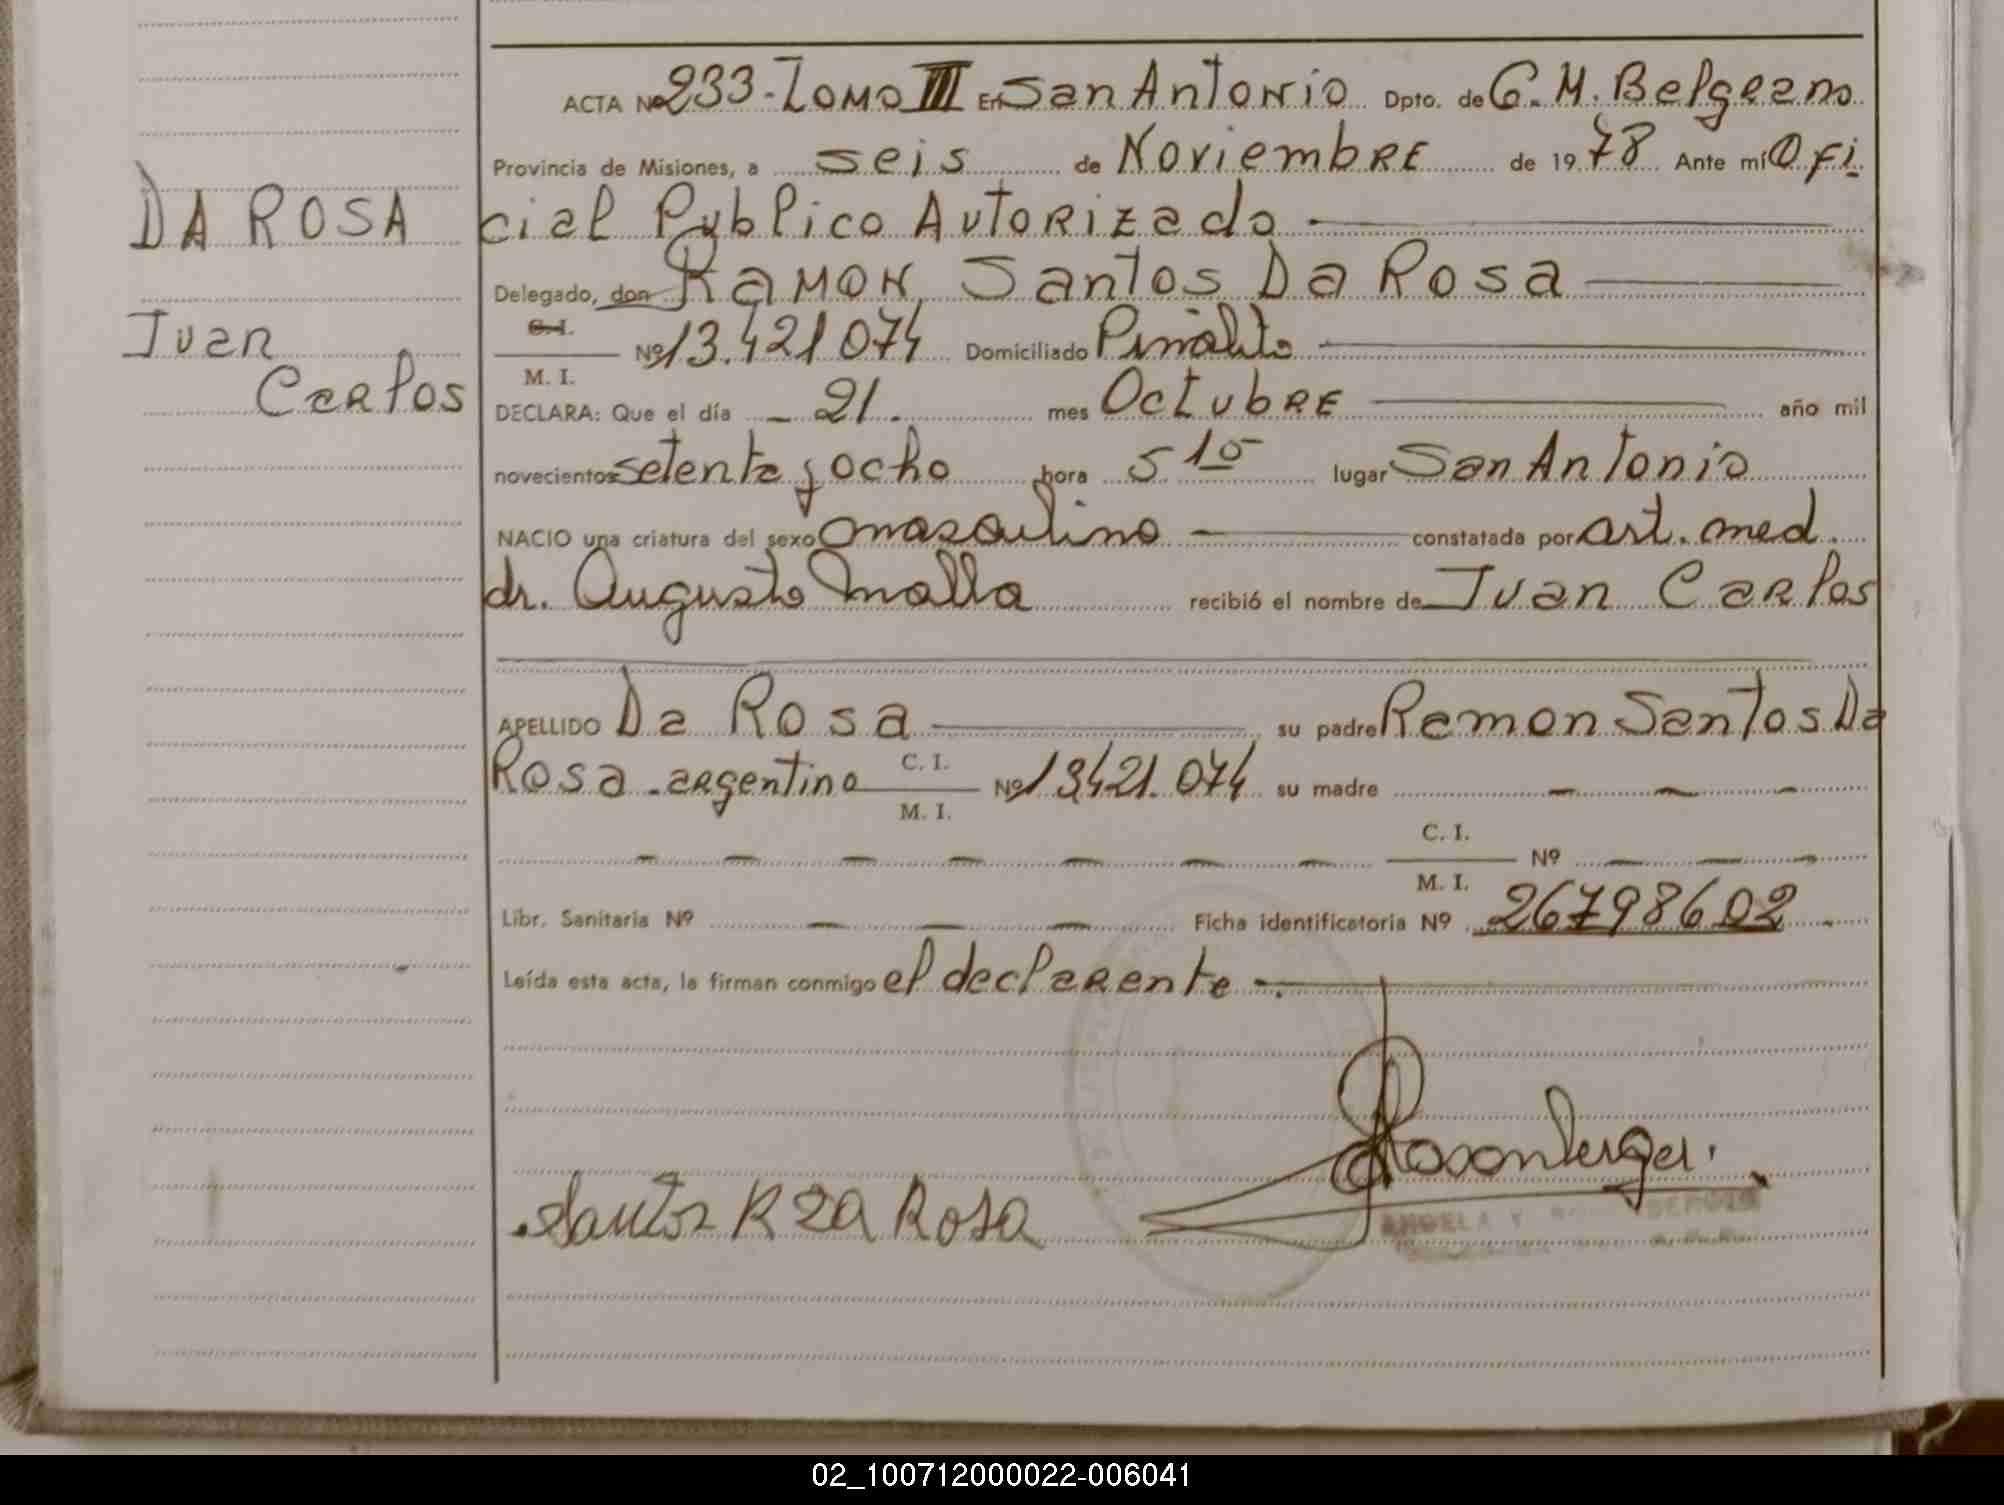 ACTA Nº 233 - Tomo III En San Antonio Dpto. de G. M. Belgrano
Provincia de Misiones, a seis de Noviembre de 1978 Ante mí Ofi
DA ROSA
cial Publico Autorizado
Delegado, don Ramon Santos Da Rosa
Juan
C. I.
Nº 13.421074 Domiciliado Piñalito
M. I.
Carlos
DECLARA: Que el día - 21. mes Octubre año mil
novecientos setenta y ocho hora 5 10 lugar San Antonio
NACIO una criatura del sexo masculino constatada por art. med.
dr. Augusto Malla recibió el nombre de Juan Carlos
APELLIDO Da Rosa su padre Ramon Santos Da
Rosa - argentino C. I. Nº 13.421.074 su madre - - -
M. I.
- - - - - - - C. I. Nº - - -
M. I.
Libr. Sanitaria Nº - - - Ficha identificatoria Nº 26798602 -
Leída esta acta, la firman conmigo el declarante -.
Rosonberger.
Santos R Da Rosa
ANGELA Y
02_100712000022-006041